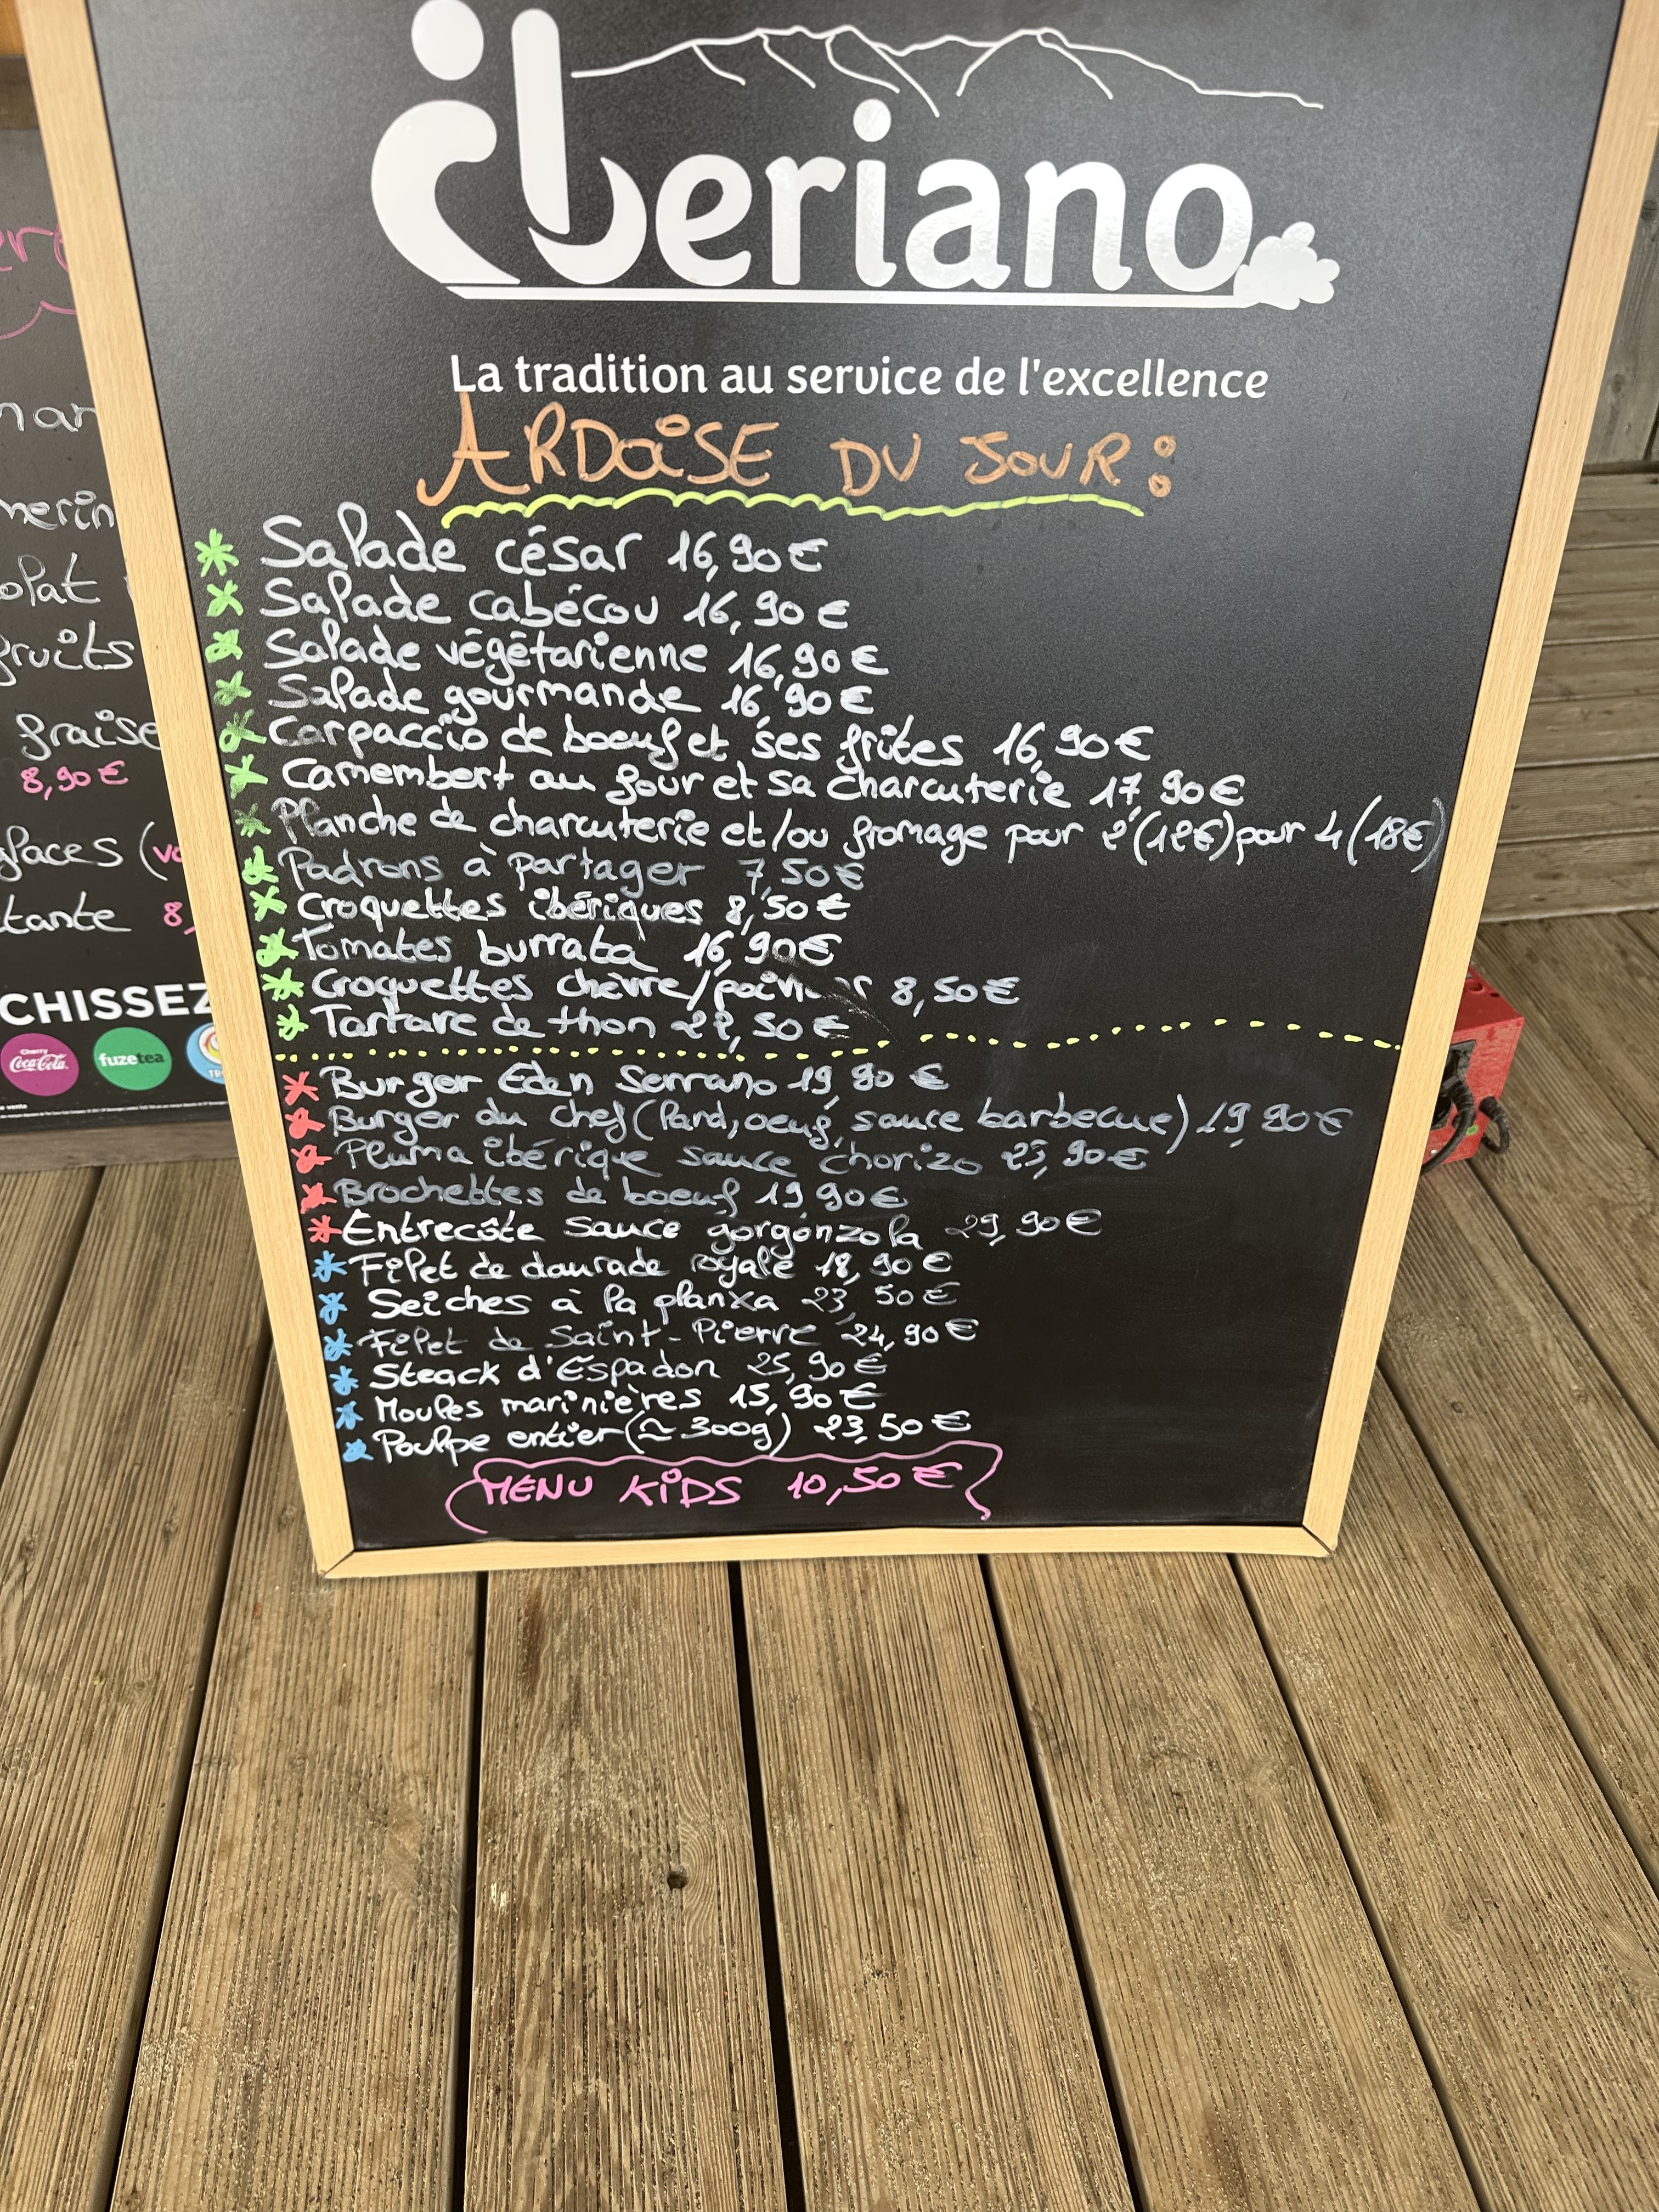 iberiano
La tradition au service de l'excellence
ARDOISE DU JOUR :
Salade césar 16,90€
Salade cabécou 16,90€
Salade végétarienne 16,90€
Salade gourmande 16,90€
Carpaccio de boeuf et ses frites 16,90€
Camembert au four et sa charcuterie 17,90€
Planche de charcuterie et/ou fromage pour 2 (12€) pour 4 (18€)
Padrons à partager 7,50€
Croquettes ibériques 8,50€
Tomates burrata 16,90€
Croquettes chèvre/ 8,50€
Tartare de thon 22,50€
Burger Eden Serrano 19,90€
Burger du chef (lard, oeuf, sauce barbecue) 19,90€
Pluma ibérique sauce chorizo 23,90€
Brochettes de boeuf 19,90€
Entrecôte sauce gorgonzola 29,90€
Filet de daurade royale 18,90€
Seiches à la planxa 23,50€
Filet de Saint-Pierre 24,90€
Steack d'Espadon 25,90€
Moules marinières 15,90€
Poulpe entier (≃ 300g) 23,50€
MENU KiDS 10,50€
fruits
fraise
8,90€
glaces
CHISSEZ
Cherry
Coca-Cola
fuzetea